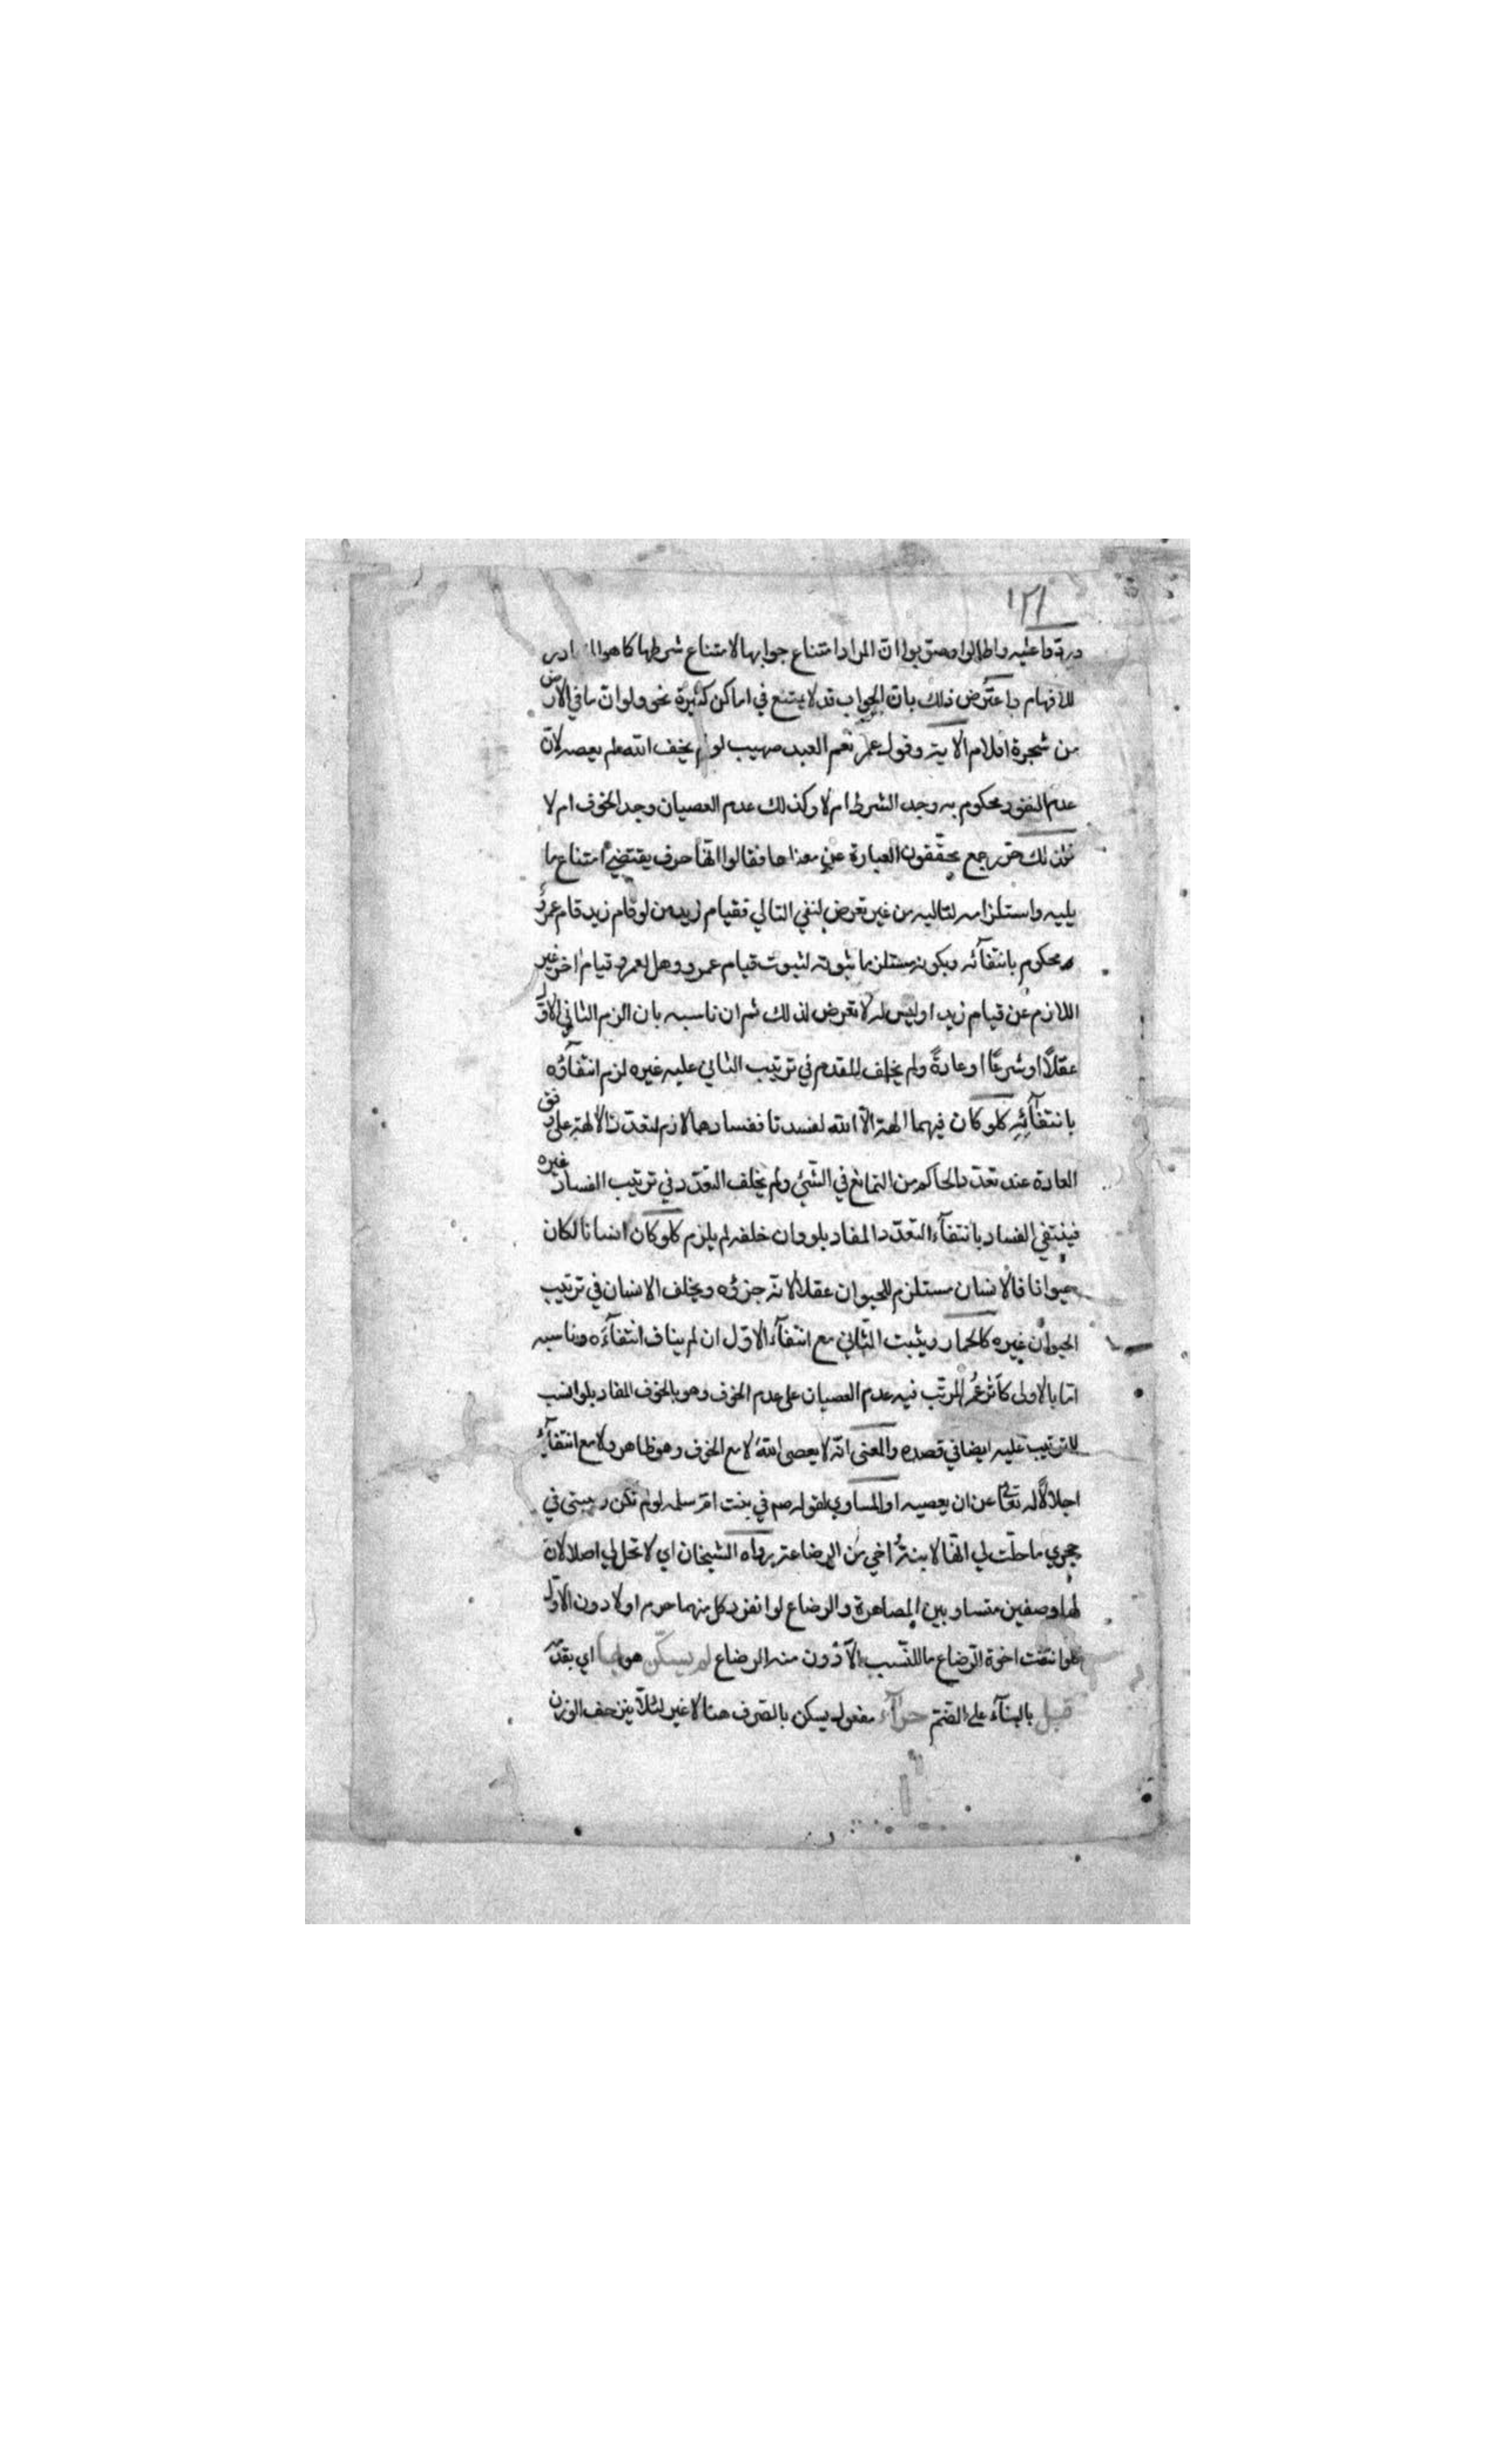 ١٢١
واطالوا وصوبوا ان المراد امتناع جوابها لامتناع شرطها كما هو
للافهام واعترض ذلك بان الجواب قد لا يمتنع في اماكن كثيرة نحو ولو ان ما في الارض
من شجرة اقلام الاية وقول عمر نعم العبد صهيب لو لم يخف الله لم يعصه لان
عدم النفود محكوم به وجد الشرط ام لا وكذلك عدم العصيان وجد الخوف ام لا
رجع محققون العبارة عن معناها فقالوا انها حرف يقتضي امتناع ما
يليه واستلزامه لتاليه من غير تعرض لنفي التالي فقيام زيد من لو قام زيد قام عمرو
محكوم بانتفائه وبكونه مستلزما ثبوته لثبوت قيام عمرو وهل لعمرو قيام اخر غير
اللازم عن قيام زيد او ليس له لا تعرض لذلك ثم ان ناسبه بان الزم الثاني الاول
عقلاً او شرعًا او عادةً ولم يخلف للمقدم في ترتيب الثاني عليه غيره لزم انتفاؤه
بانتفائِهِ كلو كان فيهما الهة الا الله لفسدتا ففسادهما لازم لتعدد الالهة على وفق
العادة عند تعدد الحاكم من التمانع في الشئ ولم يخلف التعدد في ترتيب الفساد غيره
فينتفي الفساد بانتفآء التعدد المفاد بلو وان خلفه لم يلزم كلو كان انسانا لكان
حيوانا فالانسان مستلزم للحيوان عقلا لانه جزؤه ويخلف الانسان في ترتيب
الحيوان غيره كالحمار ويثبت الثاني مع انتفآء الاول ان لم يناف انتفآءه وناسبه
اما بالاولى كاثر عمر المرتب فيه عدم العصيان على عدم الخوف وهو بالخوف المفاد بلو انسب
للترتيب عليه ايضا في قصده والمعنى انه لا يعصى الله لا مع الخوف وهو ظاهر ولا مع انتفآئه
اجلالاً له تعالى عن ان يعصيه او المساوي لقوله صم في بنت ام سلمه لو لم تكن ربيبتى في
حجري ما حلت لي انها لابنة اخي من الرضاعة رواه الشيخان اي لا تحل لي اصلا لان
لها وصفين متساويين المصاهرة والرضاع لو انفرد كل منهما حرم او لادون الاول
فلو انتفت اخوة الرضاع ما للنسب الادون منه الرضاع لم يسكن هو اي
قبل بالبنآء على الضم حرآء مفعول يسكن بالصرف هنا لا غير لئلا ينزحف الوزن